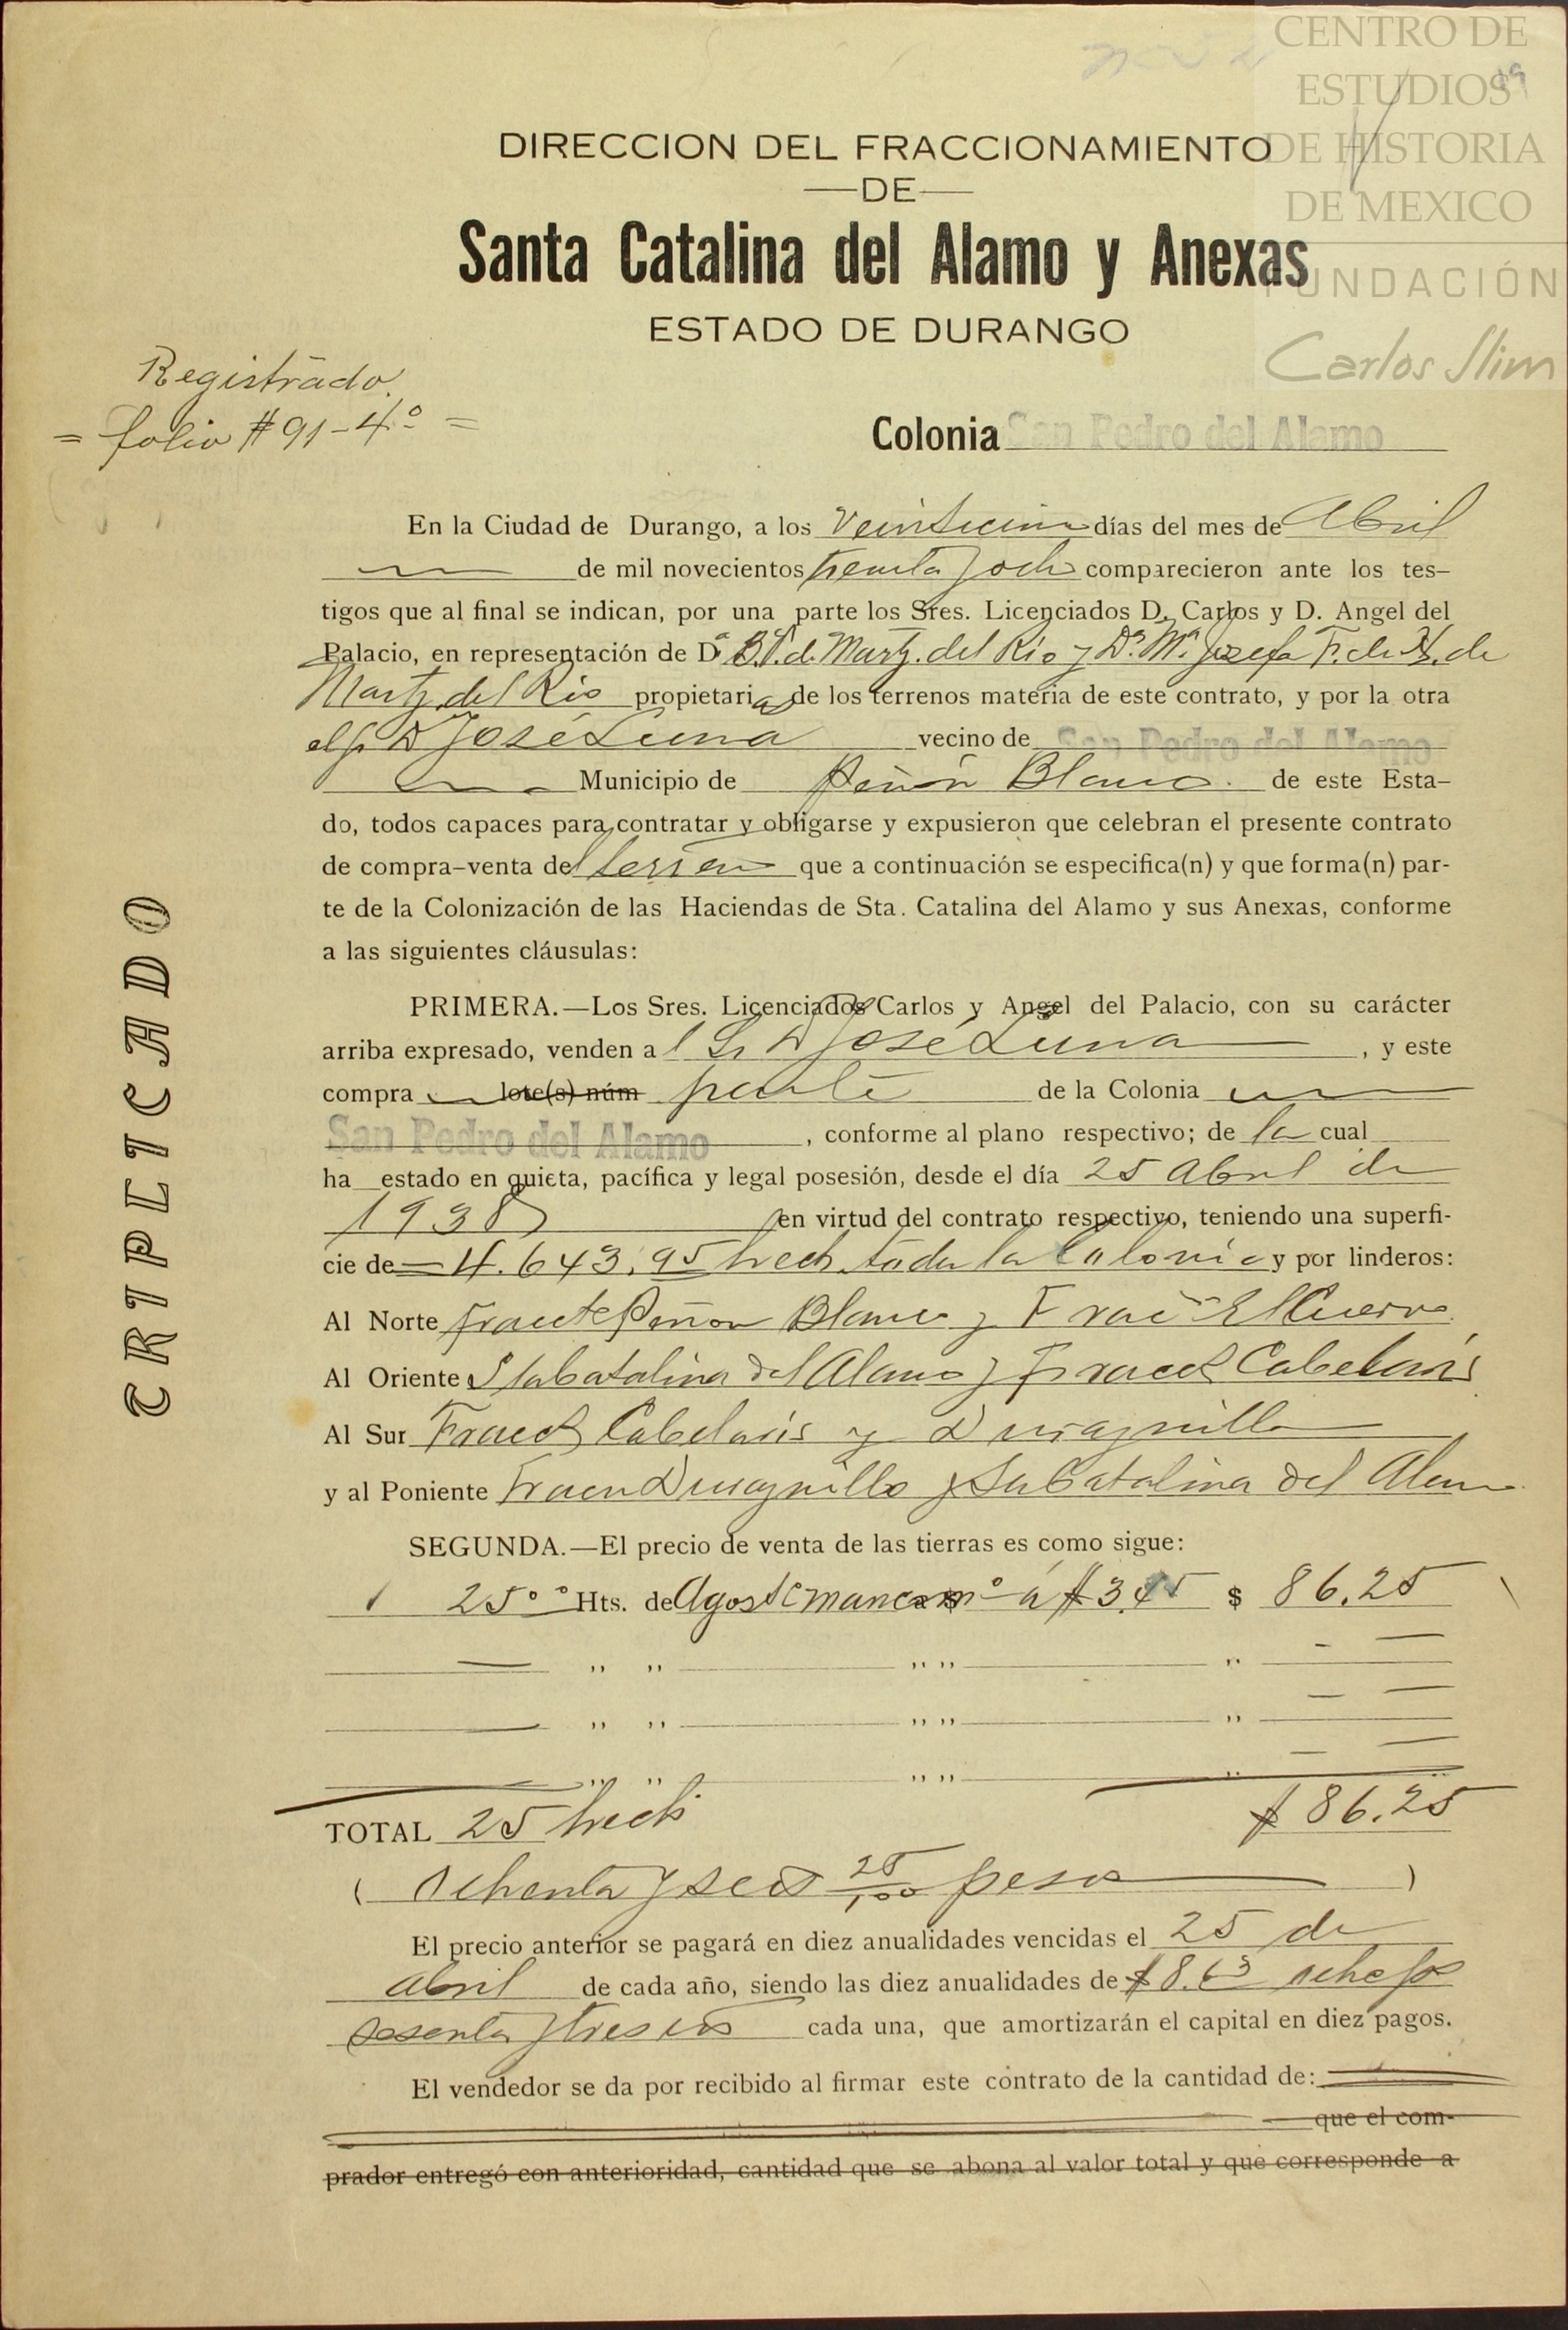 CENTRO DE
ESTUDIOS
DE HISTORIA
DE MEXICO
FUNDACIÓN
Carlos Slim
DIRECCION DEL FRACCIONAMIENTO
—DE—
Santa Catalina del Alamo y Anexas
ESTADO DE DURANGO
Registrado.
= folio # 91-4º =
Colonia San Pedro del Alamo
TRIPLICADO
En la Ciudad de Durango, a los veinticinco días del mes de Abril
de mil novecientos treinta y ocho comparecieron ante los tes-
tigos que al final se indican, por una parte los Sres. Licenciados D. Carlos y D. Angel del
Palacio, en representación de Dª B. P. de Martz. del Rio y Dª Mª Josefa F. de N. de
Martz del Rio propietarias de los terrenos materia de este contrato, y por la otra
el Sr. D José Luna vecino de San Pedro del Alamo
Municipio de Peñón Blanco. de este Esta-
do, todos capaces para contratar y obligarse y expusieron que celebran el presente contrato
de compra-venta del terreno que a continuación se especifica(n) y que forma(n) par-
te de la Colonización de las Haciendas de Sta. Catalina del Alamo y sus Anexas, conforme
a las siguientes cláusulas:
PRIMERA.—Los Sres. Licenciados Carlos y Angel del Palacio, con su carácter
arriba expresado, venden al Sr D José Luna, y este
compra lote(s) núm parte de la Colonia
San Pedro del Alamo, conforme al plano respectivo; de la cual
ha estado en quieta, pacífica y legal posesión, desde el día 25 Abril de
1938 en virtud del contrato respectivo, teniendo una superfi-
cie de 4.643,95 hech. toda la Colonia y por linderos:
Al Norte Fracc Peñon Blanco y Fracc El Cuervo
Al Oriente Sta Catalina del Alamo y Fracc Cabelaris
Al Sur Fracc Cabelaris y Duraznillo
y al Poniente Fracc Duraznillo y Sta Catalina del Alamo
SEGUNDA.—El precio de venta de las tierras es como sigue:
25ºº Hts. de Agostº mancomº á $3.45 $ 86.25
,, ,, ,, ,, ,,
,, ,, ,, ,, ,,
,, ,, ,, ,, ,,
TOTAL 25 hech $ 86.25
( Ochenta y seis 25/100 pesos )
El precio anterior se pagará en diez anualidades vencidas el 25 de
Abril de cada año, siendo las diez anualidades de $8.63 ocho ps
sesenta y tres cts cada una, que amortizarán el capital en diez pagos.
El vendedor se da por recibido al firmar este contrato de la cantidad de:
que el com-
prador entregó con anterioridad, cantidad que se abona al valor total y que corresponde a